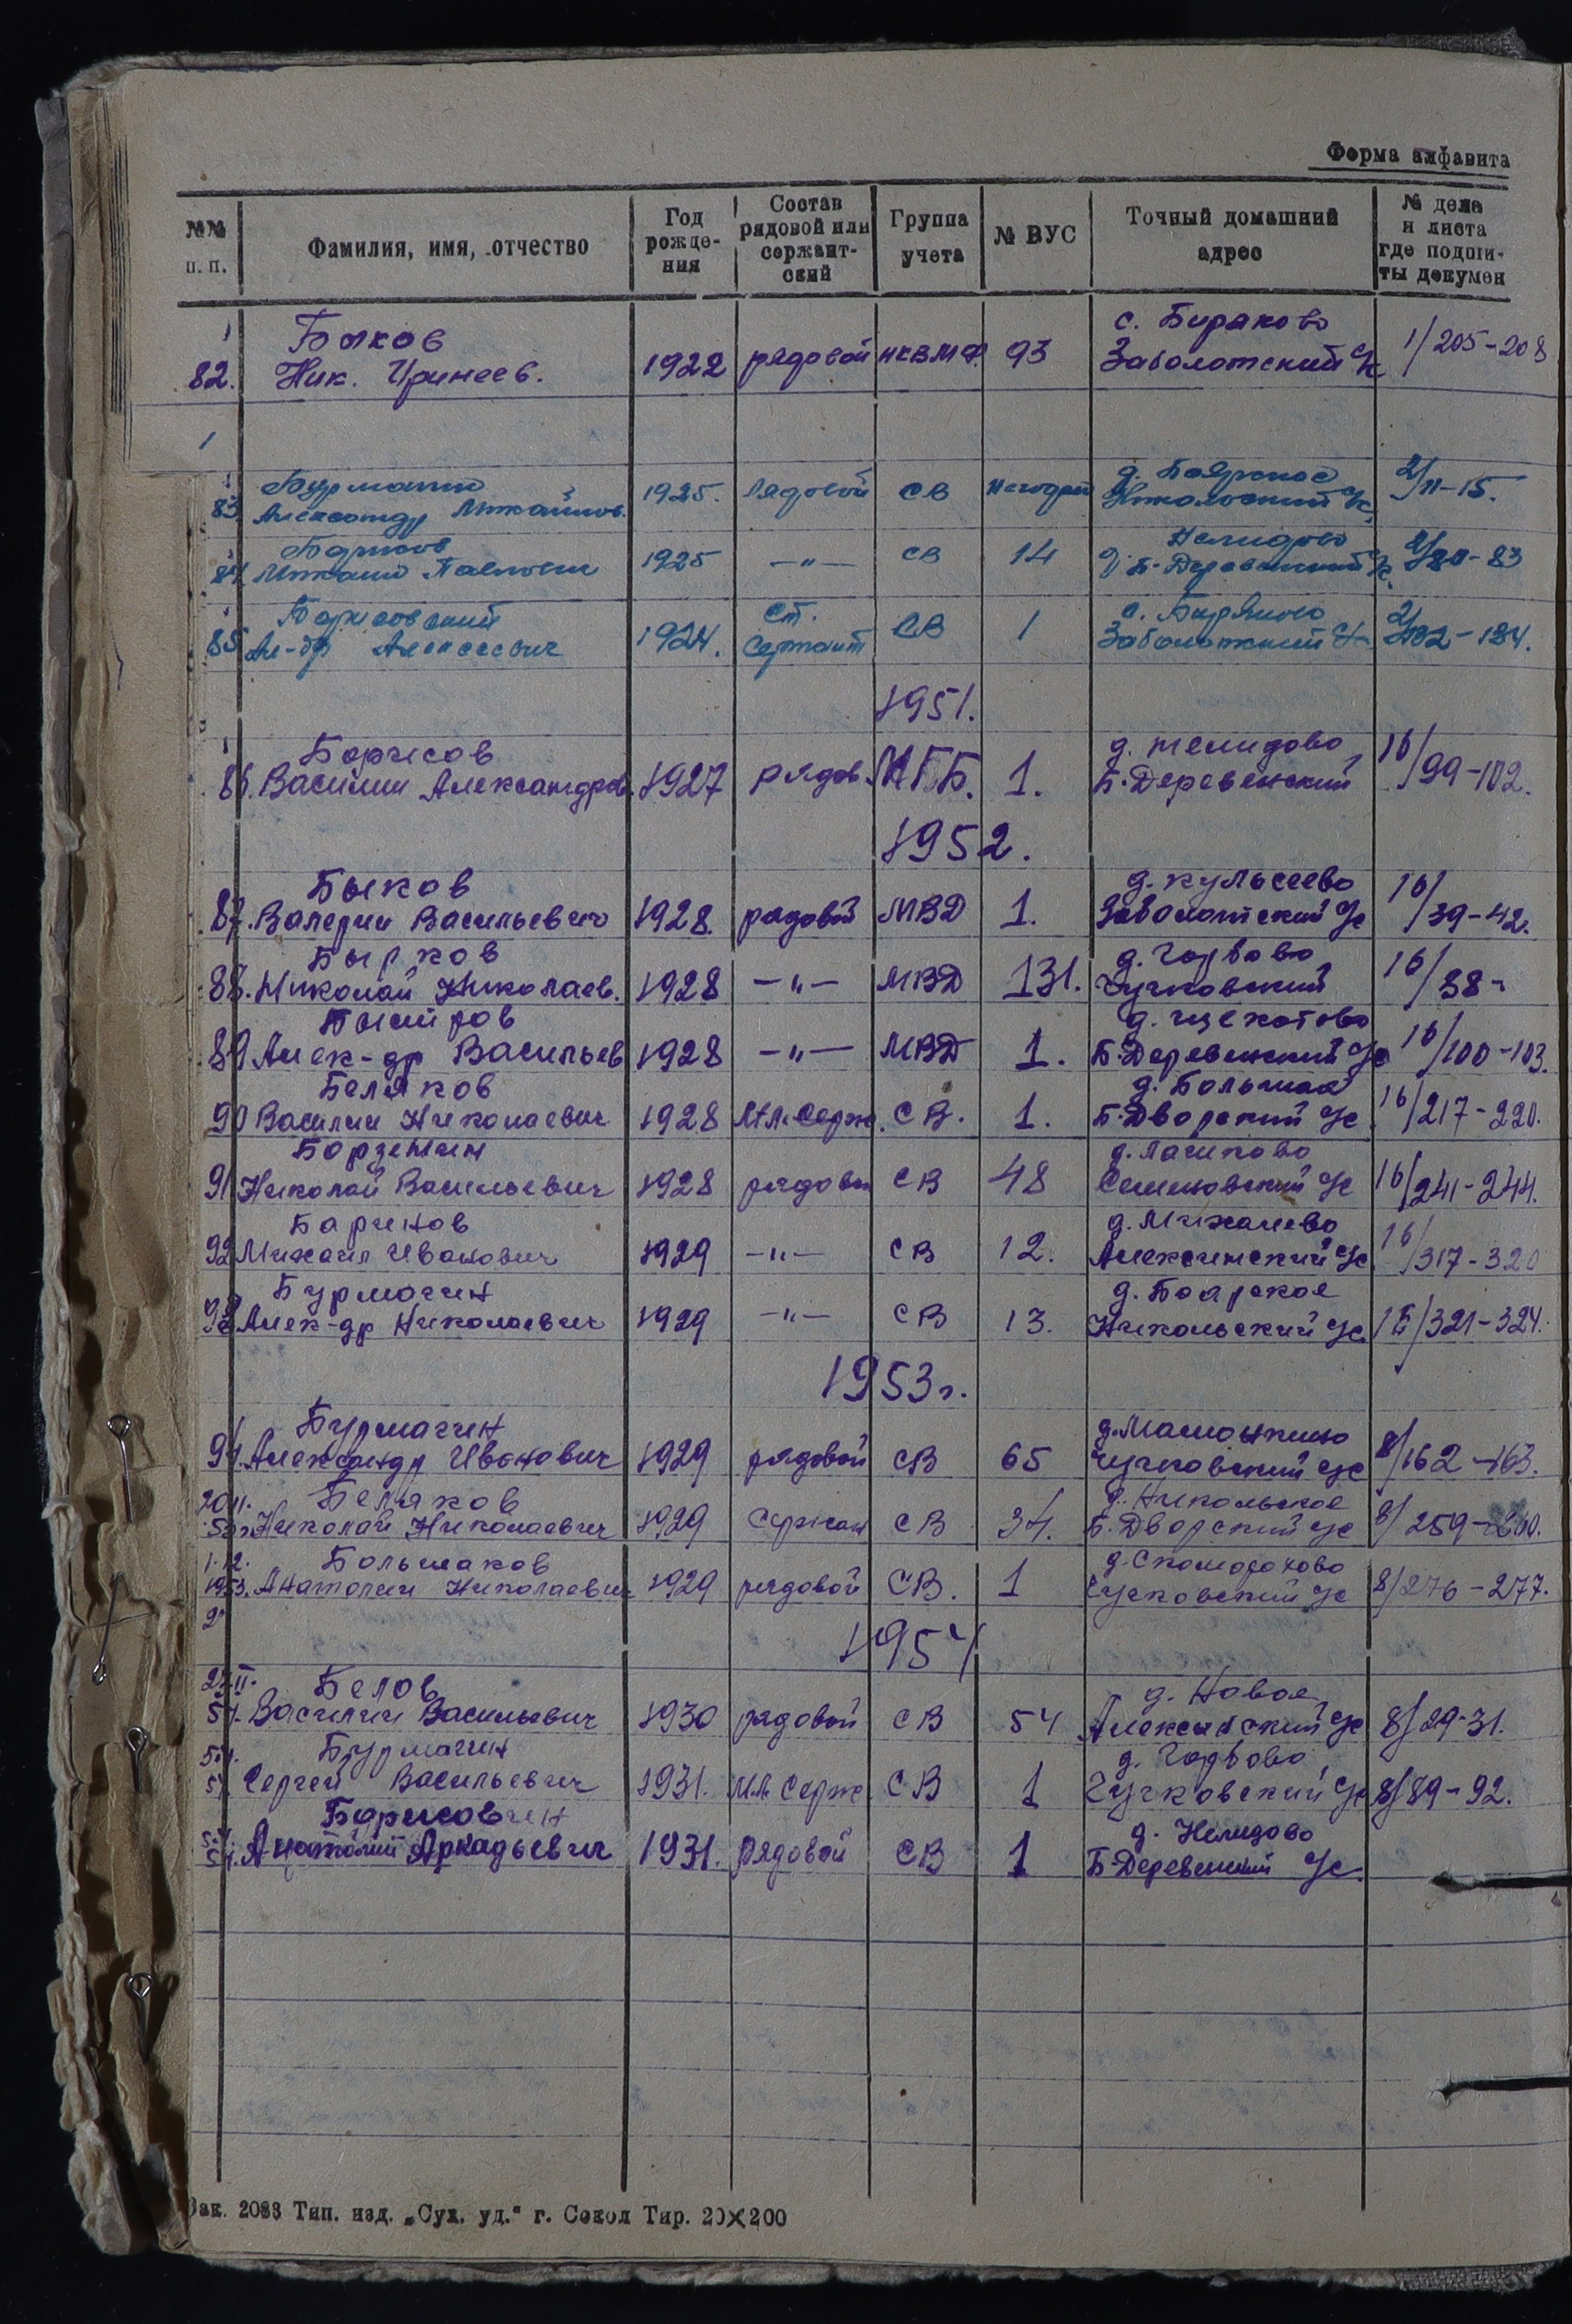 Форма алфавита
№№ п. п. | Фамилия, имя, отчество | Год рождения | Состав рядовой или сержантский | Группа учета | № ВУС | Точный домашний адрес | № дела и листа где подшиты докумен
Быков с. Бираково
82. Ник. Иринеев. 1922 рядовой НКВМФ. 93 Заболотский с/с 1/205-208
1
д. Боярское
83 Александр Михайлов. 1925. Рядовой СВ Негодный Никольский с/с 2/11-15.
Борисов Нелидово
84 Михаил Павлович 1925 -"- СВ 14 д. Б-Деревенский с/с 2/80-83
Борисовский Ст. с. Биряково
85 Ал-др Алексеевич 1924. Сержант СВ 1 Заболотский с/с 2/132-134.
1951.
Борисов д. Нелидово
86. Василий Александров. 1927 рядов. МГБ. 1. Б-Деревенский 16/99-102.
1952.
Быков д. Кульсеево
87. Валерий Васильевич 1928. рядовой МВД 1. Заболотский с/с 16/39-42.
д. Горбово
88. Николай Николаев. 1928 -"- МВД 131. Чучковский 16/38-
д. Щекотово
89 Алек-др Васильев 1928 -"- МВД 1. Б-Деревенский с/с 16/100-103.
Беляков д. Большая
90 Василий Николаевич 1928 Мл. Серж. СВ. 1. Б-Дворский с/с 16/217-220.
91 Николай Васильевич 1928 рядовой СВ 48 с/с 16/241-244.
Баринов д. Михалево
92 Михаил Иванович 1929 -"- СВ 12. Алексинский с/с 16/317-320
Бурмагин д. Боярское
93 Алек-др Николаевич 1929 -"- СВ 13. Никольский с/с 16/321-324.
1953г.
Бурмагин
94. Александр Иванович 1929 рядовой СВ 65 Чучковский с/с 8/162-163.
20.11. Беляков д. Никольское
53г. Николай Николаевич 1929 Сержан СВ 34. Б-Дворский с/с 8/259-260.
1.12. Большаков д. Скоморохово
1953. Анатолий Николаевич 1929 рядовой СВ. 1 Чучковский с/с 8/276-277.
1954
Белов д. Новое
54. Василий Васильевич 1930 рядовой СВ 54 Алексинский с/с 8/29-31.
Бурмагин д. Горбово
54. Сергей Васильевич 1931. Мл. Серж СВ 1 Чучковский с/с 8/89-92.
Борисов д. Нелидово
54. Анатолий Аркадьевич 1931. рядовой СВ 1 Б-Деревенский с/с.
Зак. 2083 Тип. изд. „Сух. уд.“ г. Сокол Тир. 20×200